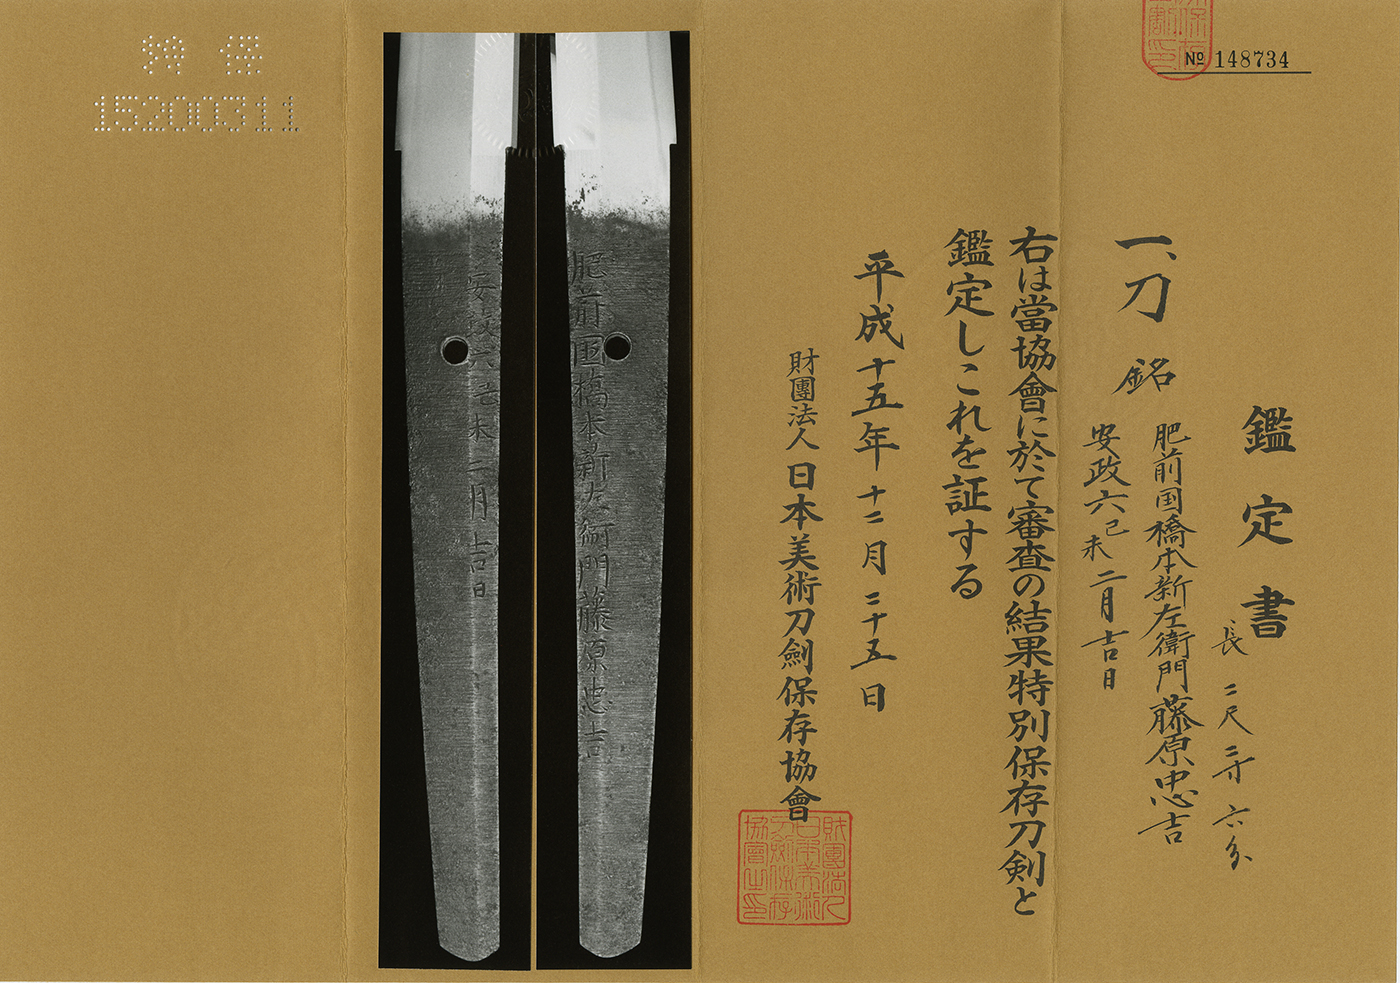 No 148734
鑑定書
長 二尺三寸六分
一、刀 銘
肥前国橋本新左衛門藤原忠吉
安政六己未二月吉日
右は當協會に於て審査の結果特別保存刀剣と
鑑定しこれを証する
平成十五年十二月二十五日
財團法人 日本美術刀劍保存協會
財團法人
日本美術
刀劍保存
協會之印
肥前国橋本新左衛門藤原忠吉
安政六己未二月吉日
特保
15200311